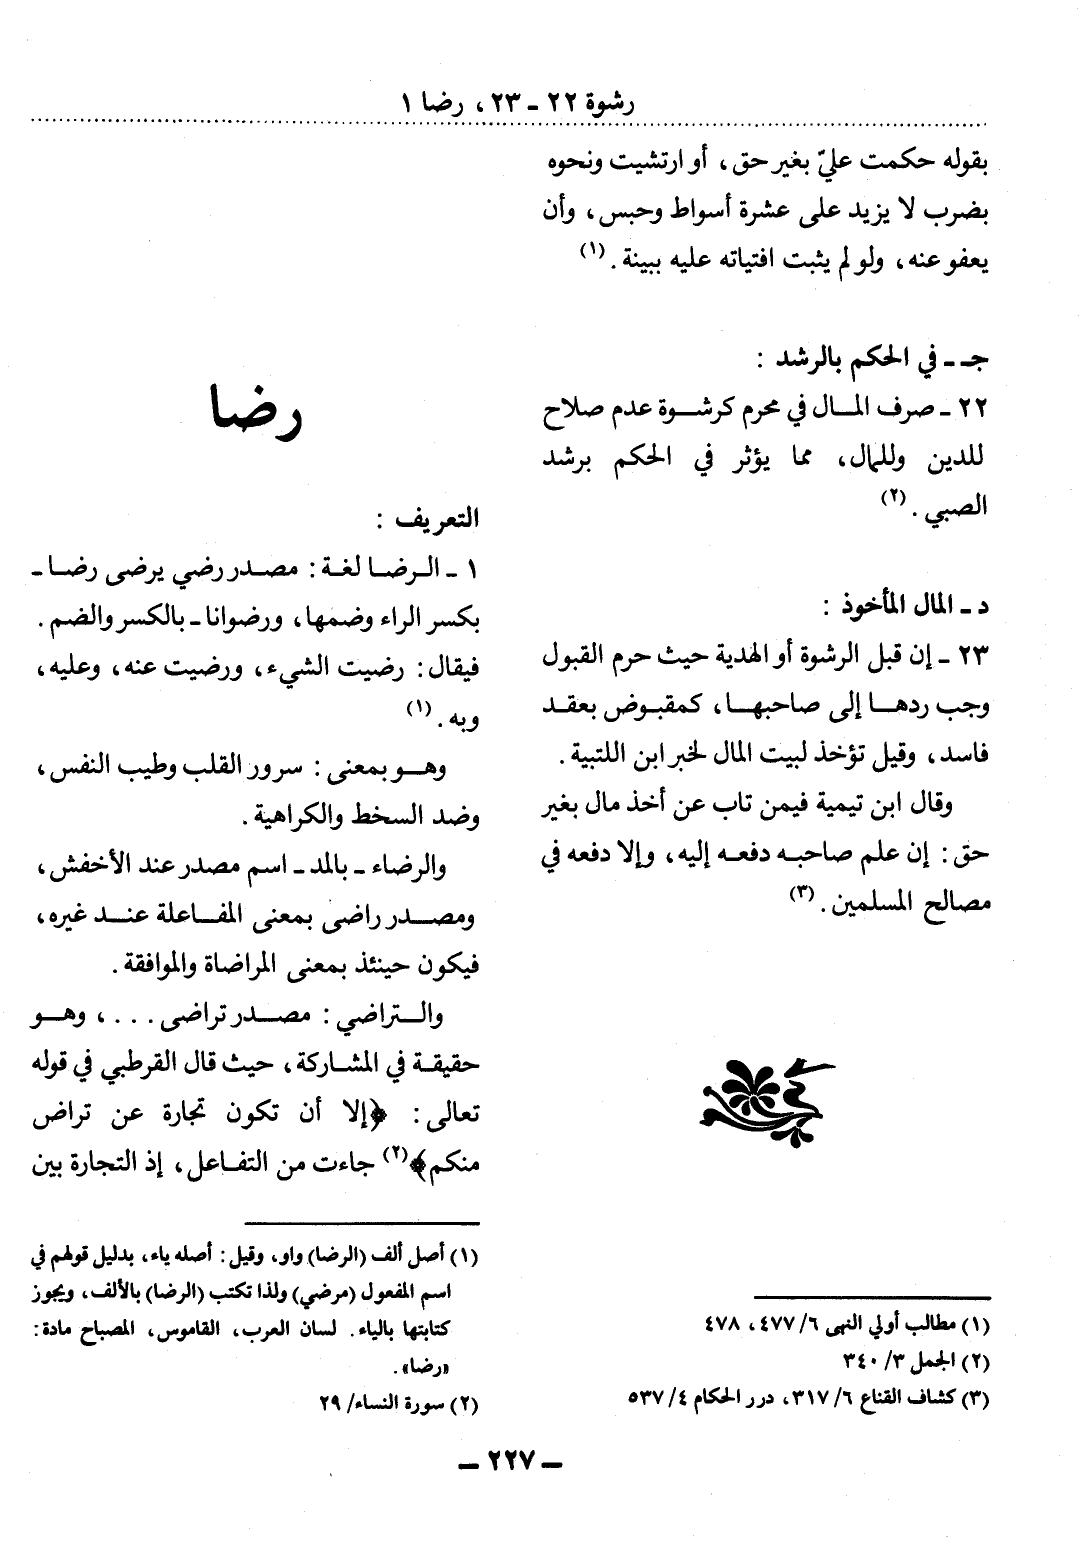 رشوة ٢٢ - ٢٣، رضا ١
بقوله حكمت عليّ بغير حق، أو ارتشيت ونحوه
بضرب لا يزيد على عشرة أسواط وحبس، وأن
يعفو عنه، ولو لم يثبت افتياته عليه ببينة. (١)
جـ - في الحكم بالرشد :
٢٢ - صرف المال في محرم كرشوة عدم صلاح
للدين وللمال، مما يؤثر في الحكم برشد
الصبي. (٢)
د - المال المأخوذ :
٢٣ - إن قبل الرشوة أو الهدية حيث حرم القبول
وجب ردها إلى صاحبها، كمقبوض بعقد
فاسد، وقيل تؤخذ لبيت المال لخبر ابن اللتبية.
وقال ابن تيمية فيمن تاب عن أخذ مال بغير
حق: إن علم صاحبه دفعه إليه، وإلا دفعه في
مصالح المسلمين. (٣)
(١) مطالب أولي النهى ٦/ ٤٧٧، ٤٧٨
(٢) الجمل ٣/ ٣٤٠
(٣) كشاف القناع ٦/ ٣١٧، درر الحكام ٤/ ٥٣٧
رضا
التعريف :
١ - الرضا لغة: مصدر رضي يرضى رضا -
بكسر الراء وضمها، ورضوانا - بالكسر والضم.
فيقال: رضيت الشيء، ورضيت عنه، وعليه،
وبه. (١)
وهو بمعنى: سرور القلب وطيب النفس،
وضد السخط والكراهية.
والرضاء - بالمد - اسم مصدر عند الأخفش،
ومصدر راضى بمعنى المفاعلة عند غيره،
فيكون حينئذ بمعنى المراضاة والموافقة.
والتراضي: مصدر تراضى ...، وهو
حقيقة في المشاركة، حيث قال القرطبي في قوله
تعالى: ﴿إلا أن تكون تجارة عن تراض
منكم﴾(٢) جاءت من التفاعل، إذ التجارة بين
(١) أصل ألف (الرضا) واو، وقيل: أصله ياء، بدليل قولهم في
اسم المفعول (مرضي) ولذا تكتب (الرضا) بالألف، ويجوز
كتابتها بالياء. لسان العرب، القاموس، المصباح مادة:
«رضا».
(٢) سورة النساء/ ٢٩
- ٢٢٧ -